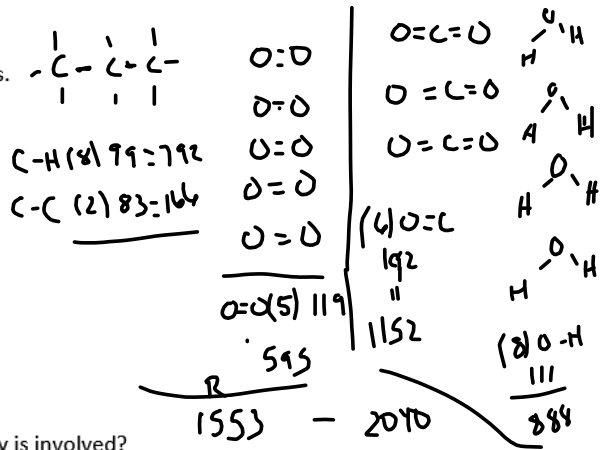 s.
C-C-C-
C-H (8) 99=792
C-C (2) 83=166
O=O
O=O
O=O
O=O
O=O
O=O(5) 119
595
R
1553 - 2040
O=C=O
O=C=O
O=C=O
(6) O=C
192
=
1152
O
H H
O
H H
O
H H
O
H H
(8) O-H
111
888
y is involved?